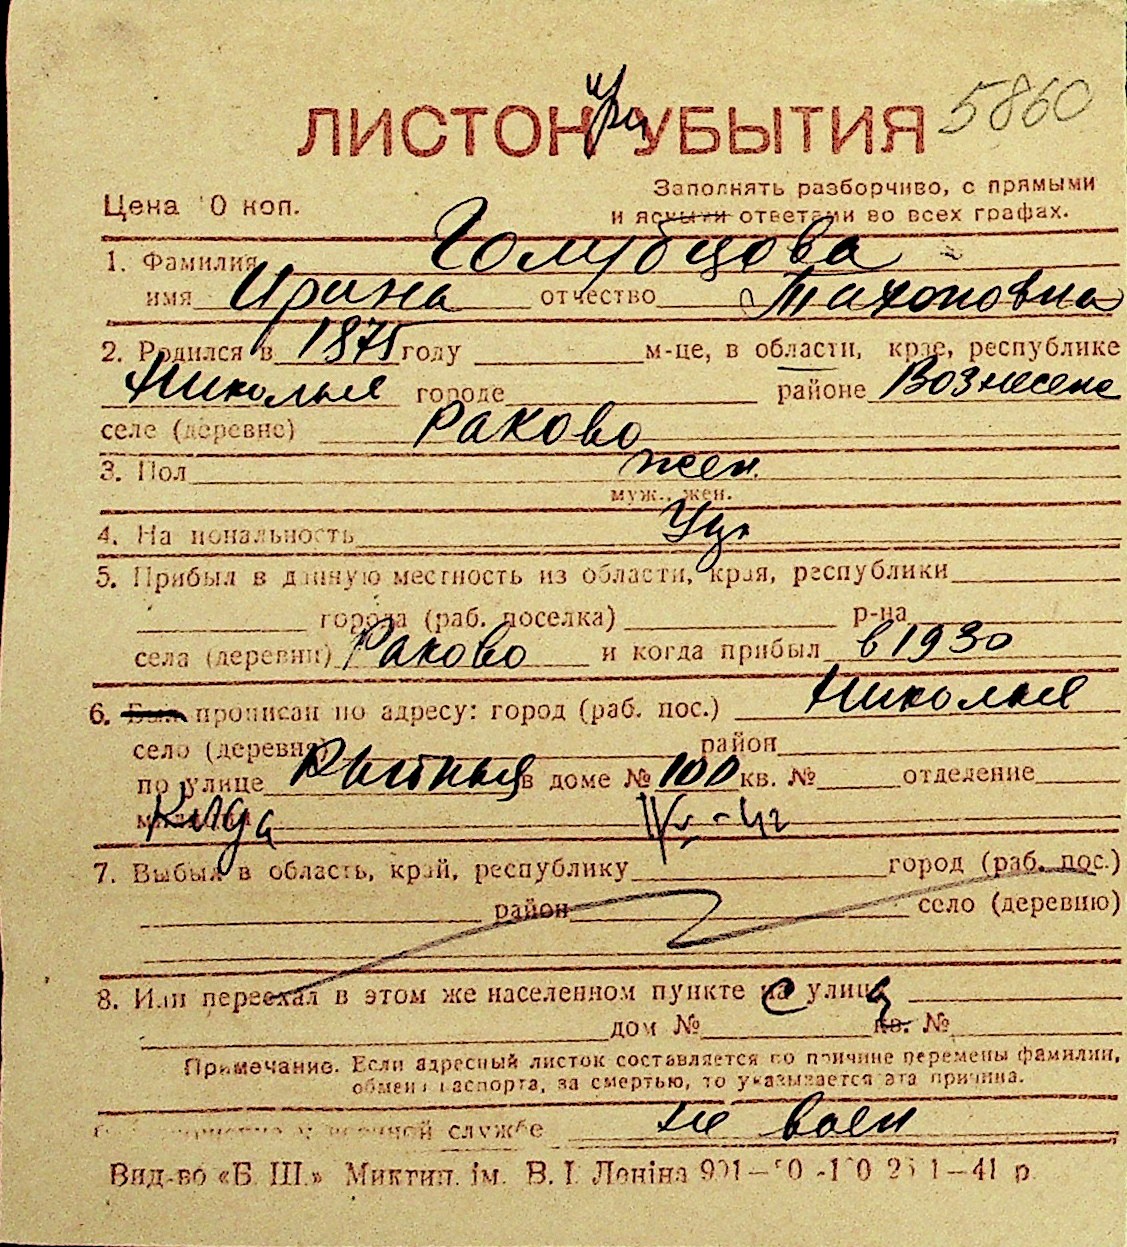 ЛИСТОК при УБЫТИЯ 5860
Цена 10 коп.
Заполнять разборчиво, с прямыми
и ясными ответами во всех графах.
1. Фамилия Голубцова
имя Ирина отчество Тахоновна
2. Родился в 1875 году м-це, в области, крае, республике
Николаев городе районе Вознесенс
селе (деревне) Раково
3. Пол жен.
муж., жен.
4. Национальность
5. Прибыл в данную местность из области, края, республики
города (раб. поселка) р-на
села (деревни) Раково и когда прибыл в 1930
6. Был прописан по адресу: город (раб. пос.) Николаев
село (деревня) район
по улице в доме № 100 кв. № отделение
милиции
7. Выбыл в область, край, республику город (раб. пос.)
район село (деревню)
8. Или переехал в этом же населенном пункте на улицу
дом № кв. №
Примечание. Если адресный листок составляется по причине перемены фамилии,
обмена паспорта, за смертью, то указывается эта причина.
службе не воен
Вид-во «Б. Ш.» Миктип. ім. В. І. Леніна 1—41 р.